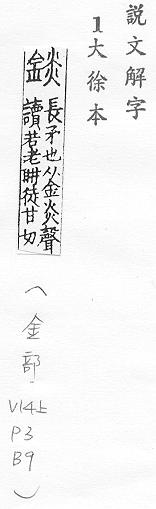 説文解字
1大徐本
錟
長矛也从金炎聲
讀若老耼徒甘切
(金部
V14上
P3
B9
)